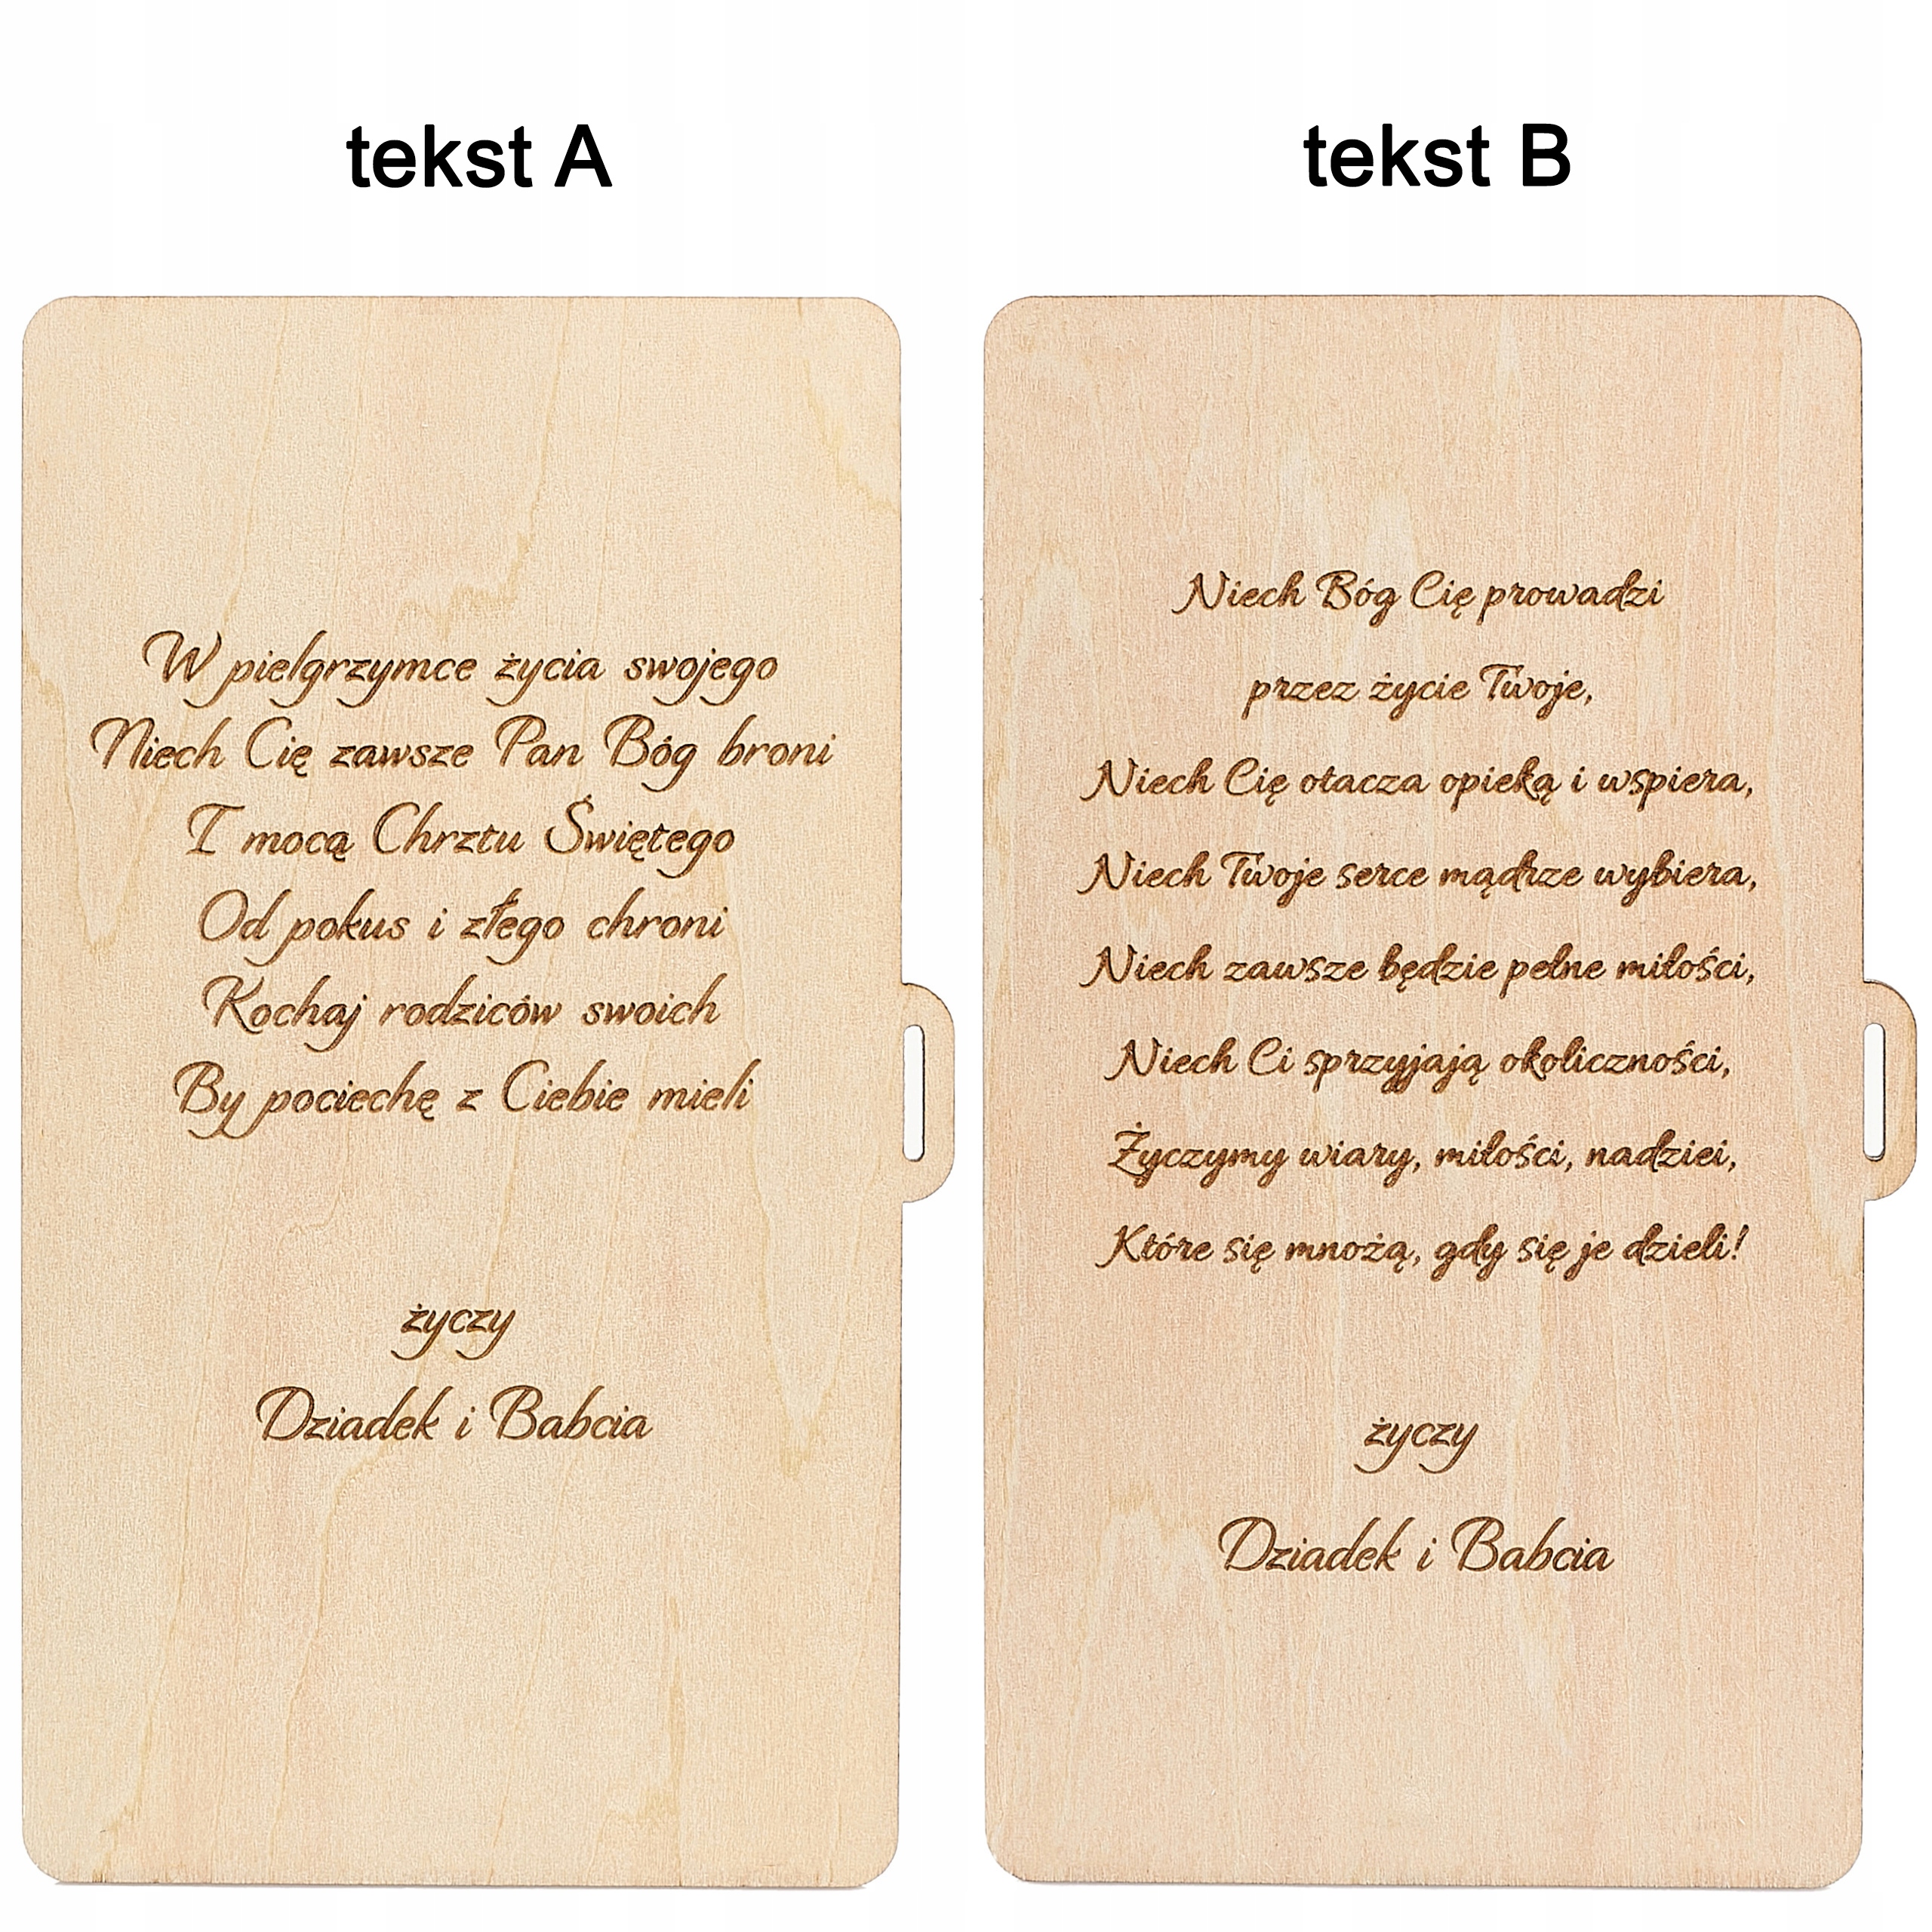 tekst A
W pielgrzymce życia swojego
Niech Cię zawsze Pan Bóg broni
I mocą Chrztu Świętego
Od pokus i złego chroni
Kochaj rodziców swoich
By pociechę z Ciebie mieli
życzy
Dziadek i Babcia
tekst B
Niech Bóg Cię prowadzi
przez życie Twoje,
Niech Cię otacza opieką i wspiera,
Niech Twoje serce mądrze wybiera,
Niech zawsze będzie pełne miłości,
Niech Ci sprzyjają okoliczności,
Życzymy wiary, miłości, nadziei,
Które się mnożą, gdy się je dzieli!
życzy
Dziadek i Babcia